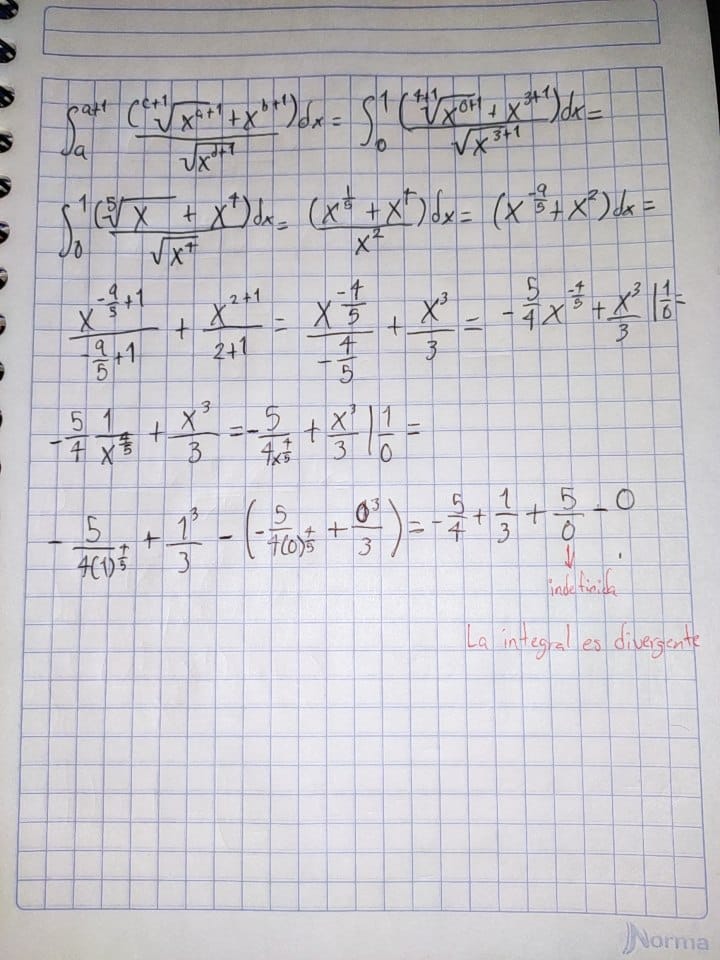 ∫_a^{a+1} (^{c+1}√(x^{a+1}) + x^{b+1})/√(x^{d+1}) dx = ∫_0^1 (^{4+1}√(x^{0+1}) + x^{3+1})/√(x^{3+1}) dx =
∫_0^1 (⁵√x + x^4)/√(x^4) dx = (x^{1/5} + x^4)/x^2 dx = (x^{-9/5} + x^2) dx =
x^{-9/5+1}/(-9/5+1) + x^{2+1}/(2+1) = x^{-4/5}/(-4/5) + x^3/3 = -5/4 x^{-4/5} + x^3/3 |_0^1 =
-5/4 1/x^{4/5} + x^3/3 = -5/(4x^{4/5}) + x^3/3 |_0^1 =
-5/(4(1)^{4/5}) + 1^3/3 - (-5/(4(0)^{4/5}) + 0^3/3) = -5/4 + 1/3 + 5/0 - 0
↓
indefinida
La integral es divergente
Norma